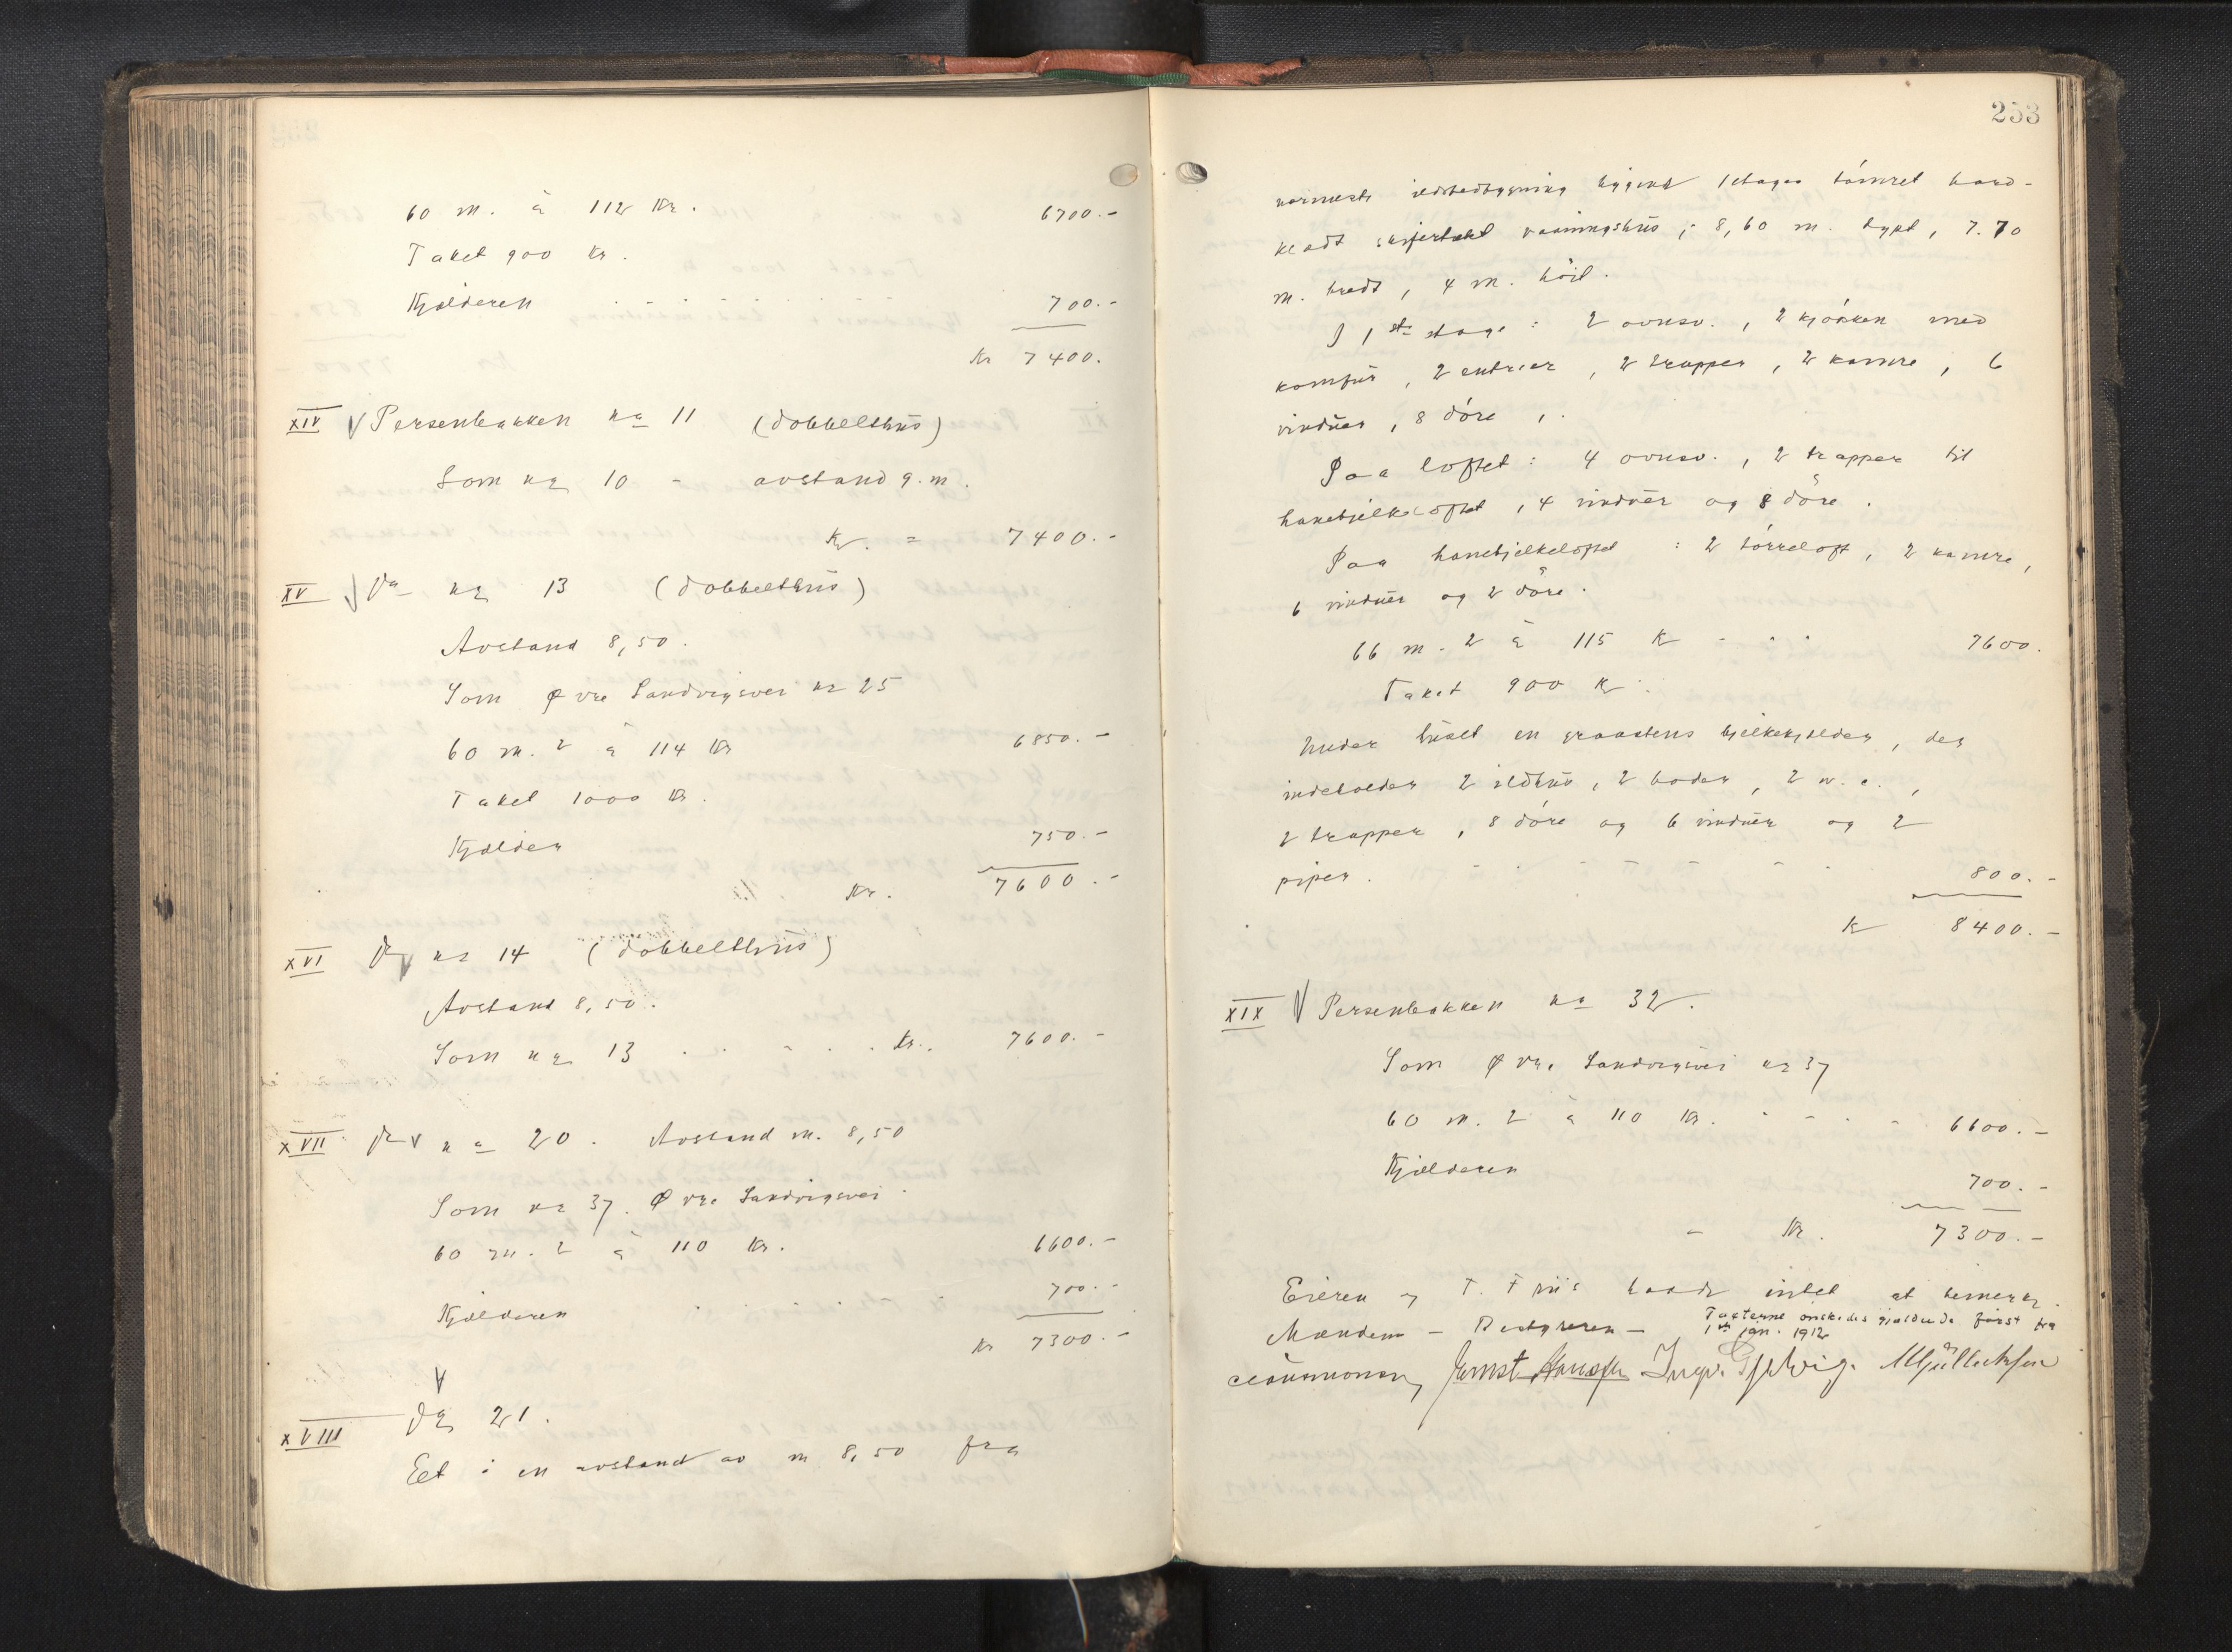 60 m. à 112 Kr. 6700.-
Taket 900 Kr.
Kjelderen 700.-
Kr 7400.
XIV Persenbakken no 11 (dobbelthus)
Som no 10 - avstand 9. m.
Kr. = 7400.-
XV Do no 13 (dobbelthus)
Avstand 8,50.
Som Øvre Sandvigsvei nr 25
60 m. 2 à 114 Kr 6850.-
Taket 1000 Kr.
Kjelder 750.-
Kr. 7600.-
XVI Do nr 14 (dobbelthus)
Avstand 8,50.
Som no 13 Kr. 7600.-
XVII Do no 20. Avstand m. 8,50
Som nr 37. Øvre Sandvigsvei.
60 m. 2 à 110 Kr. 6600.-
Kjelderen 700.-
Kr 7300.-
XVIII Do 21.
Eet i en avstand av m 8,50 fra
253
nærmeste ildstedbygning liggende 1etages tømret bord-
klædt skifertekt vaaningshus; 8,60 m. dypt, 7.70
m. bredt, 4 m. höit.
I 1ste etage: 2 ovnsv., 2 kjökken med
komfur, 2 entreer, 2 trapper, 2 kamre, 6
vinduer, 8 döre,.
Paa loftet: 4 ovnsv., 2 trapper til
hanebjelkeloftet, 4 vinduer og 8 döre.
Paa hanebjelkeloftet: 2 törreloft, 2 kamre,
6 vinduer og 2 döre.
66 m. 2 à 115 K 7600.
Taket 900 K.
Under huset en graastens bjelkekjelder, der
indeholder 2 ildhus, 2 boder, 2 w.c.,
2 trapper, 8 döre og 6 vinduer og 2
piper. 800.-
K 8400.-
XIX Persenbakken no 32.
Som Øvre Sandvigsvei nr 37
60 m. 2 à 110 Kr. 6600.-
Kjelderen 700.-
Kr. 7300.-
Eieren og T. Friis havde intet at bemerke.
Manden - Bestyreren - Taxterne önskedes gjældende först fra
1ste jan. 1912
Ernst Hansen Ingv.